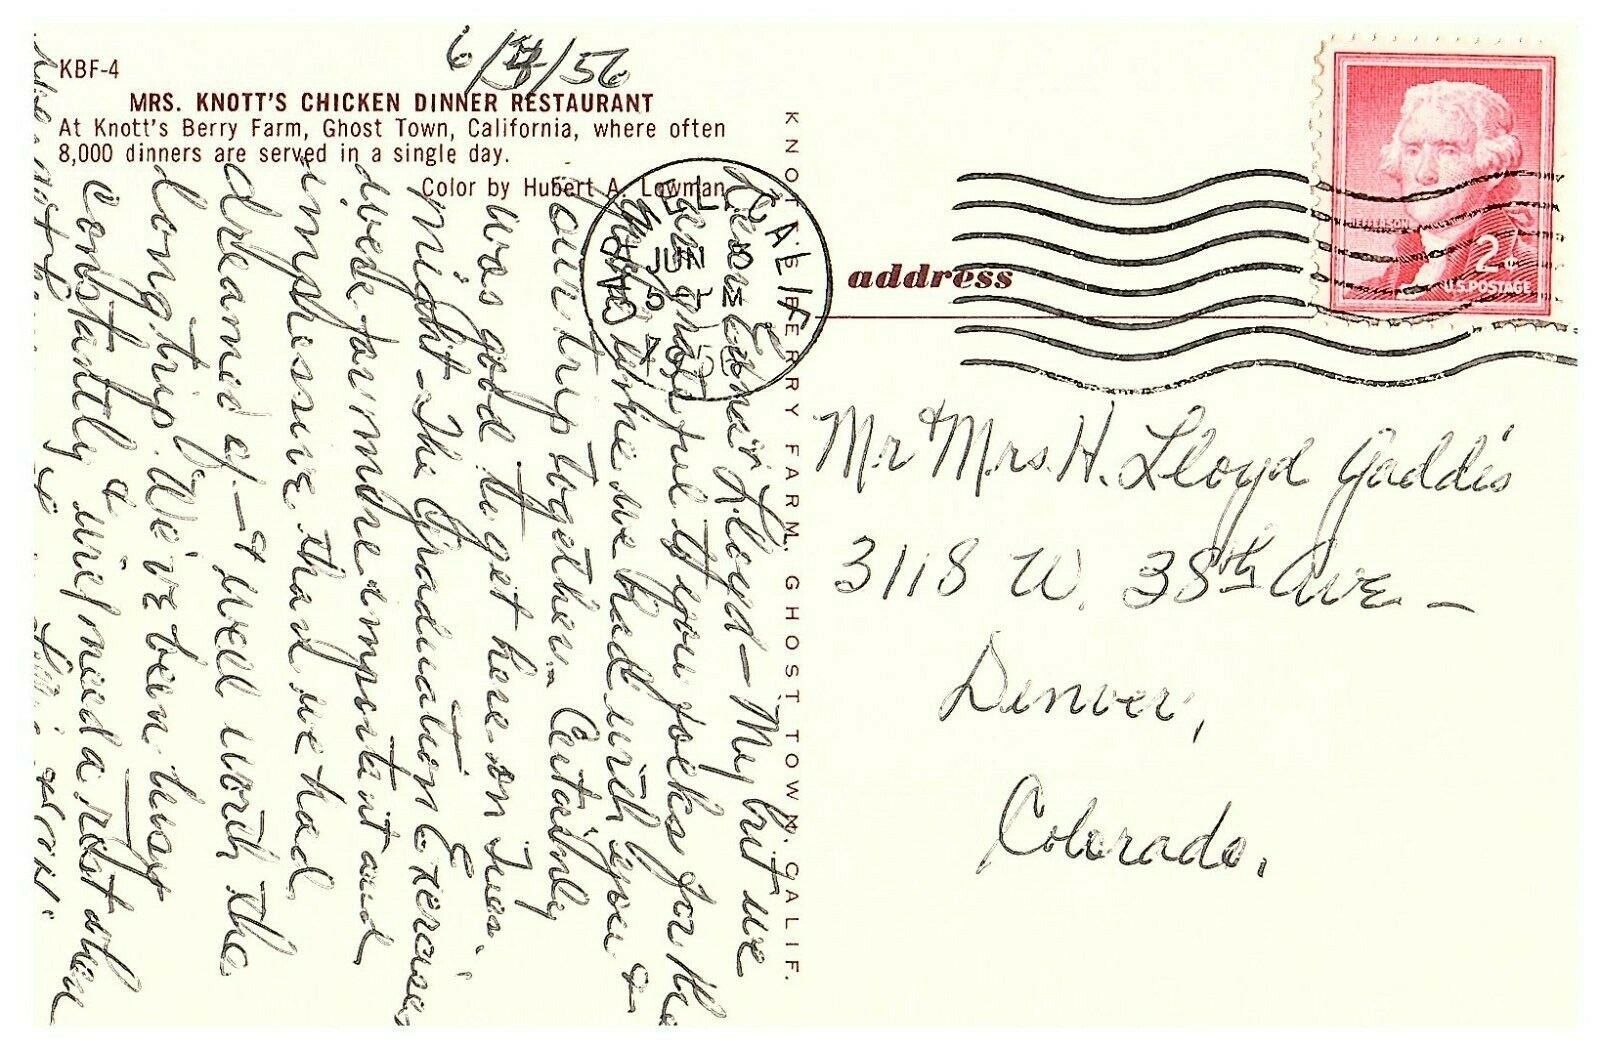 6/4/56
KBF-4
MRS. KNOTT'S CHICKEN DINNER RESTAURANT
At Knott's Berry Farm, Ghost Town, California, where often
8,000 dinners are served in a single day.
Color by Hubert A. Lowman
Dear Edna & Lloyd - My but we
are grateful to you folks for the
time we had with you &
our trip together. Certainly
was good to get here on Tues.
night - The Graduation Exercises
were far more important and
impressive than we had
dreamed of - & well worth the
long trip. We've been busy
constantly & will need a rest when
KNOTT'S BERRY FARM, GHOST TOWN, CALIF.
CALIF.
JUN 5
1956
address
JEFFERSON
2¢
U.S. POSTAGE
Mr & Mrs. H. Lloyd Gaddis
3118 W. 38th Ave -
Denver,
Colorado.